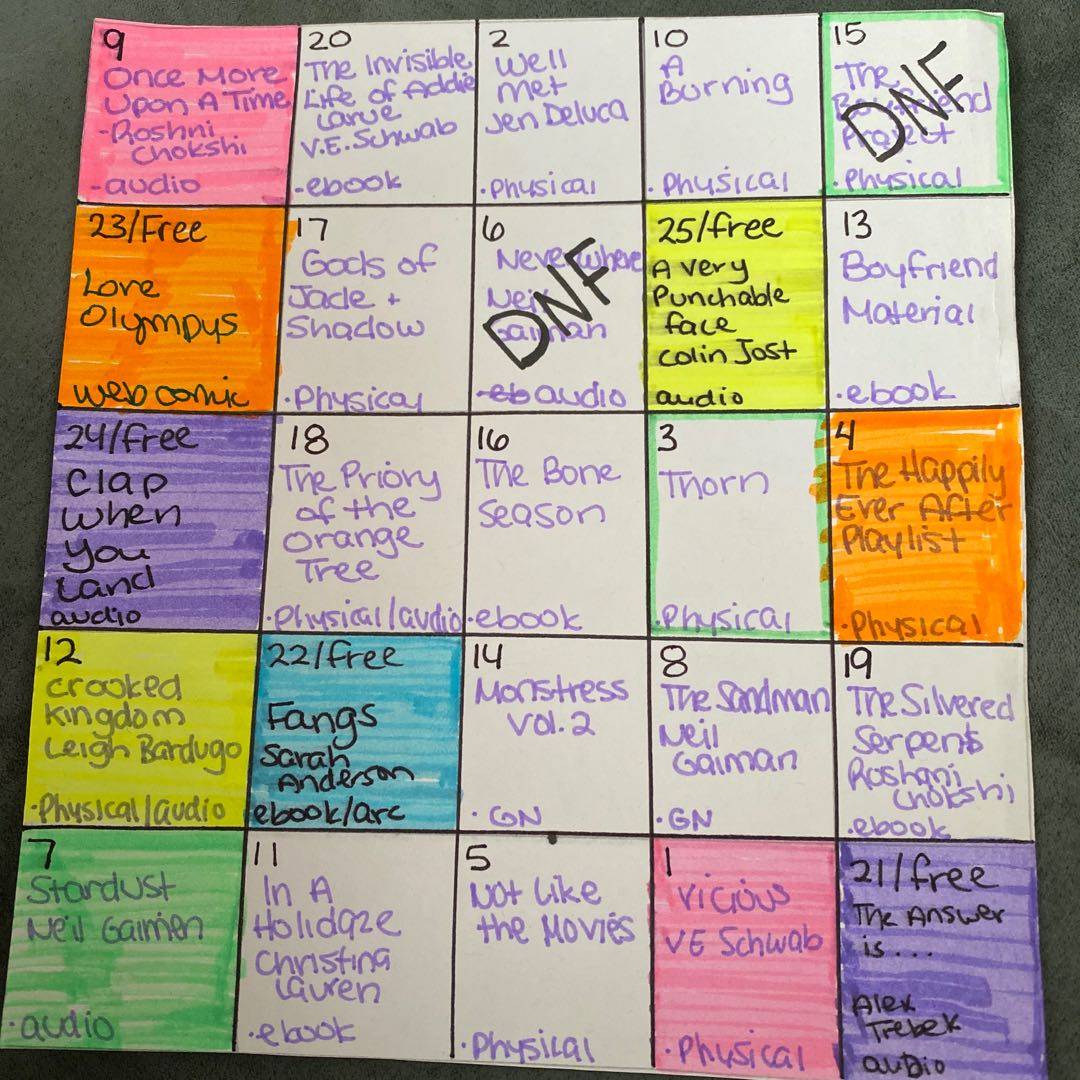 9
Once More
Upon A Time
-Roshni
Chokshi
-audio
20
The Invisible
Life of Addie
Larue
V.E. Schwab
-ebook
2
Well
met
Jen Deluca
·Physical
10
A
Burning
·Physical
15
The
Boyfriend
Project
DNF
·Physical
23/Free
Lore
Olympus
web comic
17
Gods of
Jade +
Shadow
·Physical
6
Neverwhere
Neil
Gaiman
DNF
-eb audio
25/free
A very
Punchable
face
Colin Jost
audio
13
Boyfriend
Material
·ebook
24/free
Clap
when
you
Land
audio
18
The Priory
of the
Orange
Tree
·Physical/audio
16
The Bone
Season
·ebook
3
Thorn
·Physical
4
The Happily
Ever After
Playlist
·Physical
12
Crooked
Kingdom
Leigh Bardugo
·Physical/audio
22/free
Fangs
Sarah
Anderson
ebook/arc
14
Monstress
Vol. 2
·GN
8
The Sandman
Neil
Gaiman
·GN
19
The Silvered
Serpents
Roshani
Chokshi
·ebook
7
Stardust
Neil Gaimen
·audio
11
In A
Holidaze
Christina
Lauren
·ebook
5
Not Like
the Movies
·Physical
1
Vicious
VE Schwab
·Physical
21/free
The Answer
is....
Alex
Trebek
audio